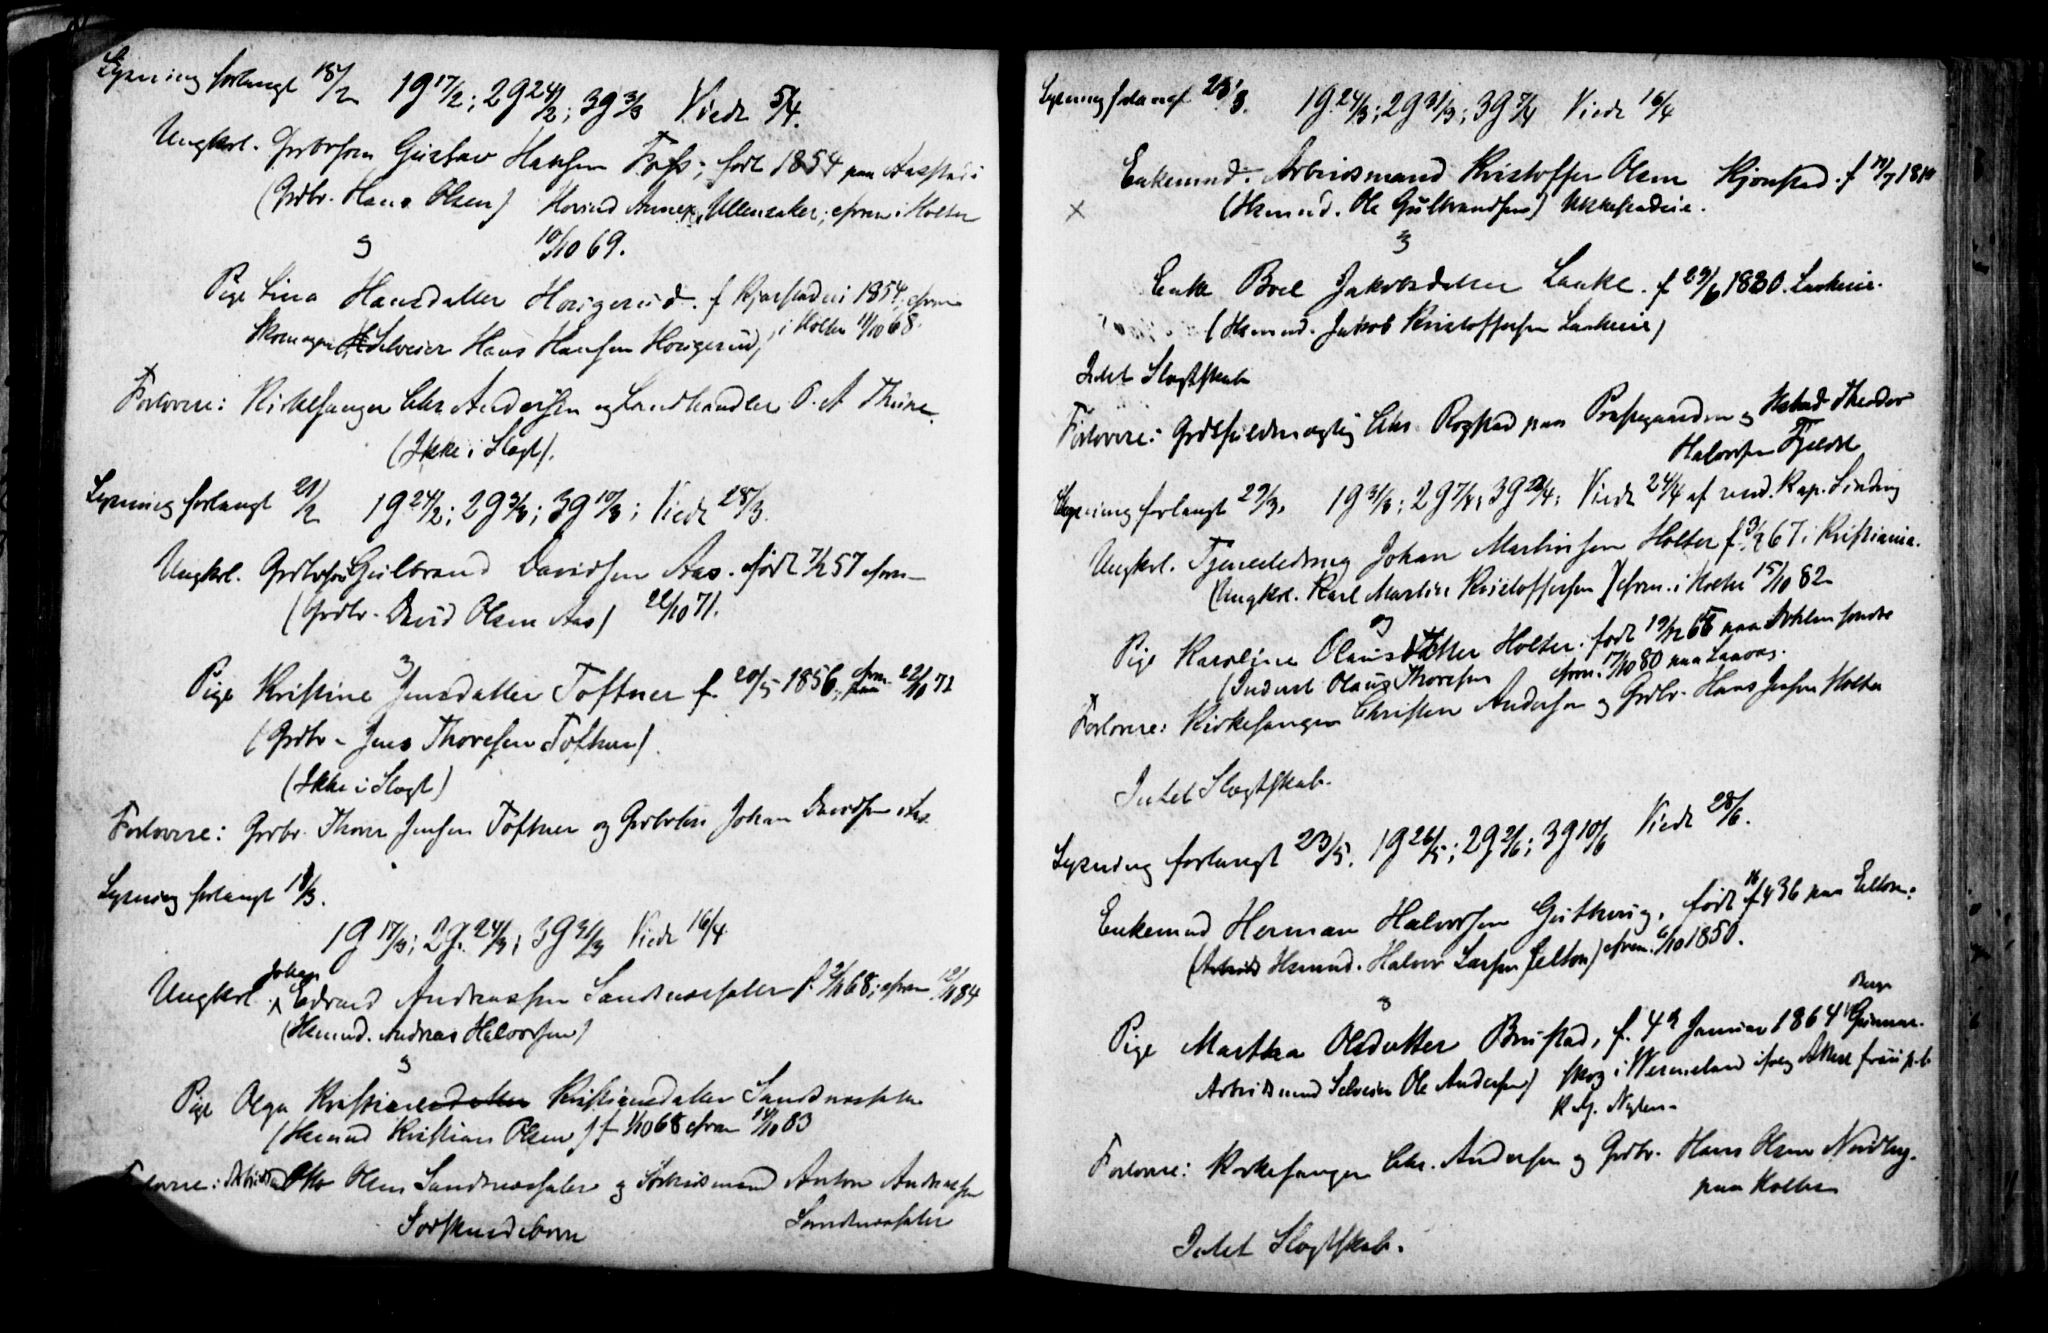 Lysning forlangt 15/2 1g 17/2; 2g 24/2; 3g 3/3 Viede 5/4.
Ungkrl. Grdbrsøn Gustav Hansen Foss; født 1854 paa Aasstad i
(Grdbr. Hans Olsen) Hovind Annex, Ullensaker; cfrm i Holter
og 10/10 69.
Pige Lina Hansdatter Horigerud. f Kjøsstadeie 1854; cfrm
Skomager Selveier Hans Hansen Horigerud, i Holter 11/10 68.
Forlovere: Kirkesanger Chr Andersen og Landhandler O. A Thune
(Ikke i Slægt).
Lysning forlangt 21/2 1g 24/2; 2g 3/3; 3g 10/3; Viede 28/3.
Ungkrl. Grdbrsøn Gulbrand Davidsen Aas. født 7/2 57 cfrm
(Grdbr. David Olsen Aas) 22/10 71.
og
Pige Kristine Jensdatter Toftner f. 20/5 1856; cfrm 22/10 71
(Grdbr. Jens Thoresen Toftner).
(Ikke i Slægt)
Forlovere: Grdbr. Thore Jensen Toftner og Grdbrsøn Johan Davidsen Aas.
Lysning forlangt 11/3.
1g 17/3; 2g. 24/3; 3g 31/3 Viede 16/4
Ungkrl. Johan Edvard Andreassen Sandnessaler f. 2/11 68; cfrm 12/10 84
(Hsmnd. Andreas Halvorsen)
og
Pige Olga Kristiansdatter Kristiansdatter Sandnessaler
(Hsmnd Kristian Olsen) f 1/10 68 cfrm 14/10 83
Forlovere: Arbeidsmd Olsen Sandnessaler og Arbeidsmand Anton Andreassen
Sødskendebørn Sandnessaler
Lysning forlangt 23/3. 1g. 24/3; 2g 31/3; 3g 7/4 Viede 16/4
Enkemnd. Arbeidsmand Kristoffer Olsen Kjønstad. f
x (Hsmnd. Ole Gulbrandsen)
og
Enke Boel Jakobsdatter Laake. f 29/6 1830. Laakeeie.
(Hsmnd. Jakob Kristoffersen Laakeeie)
Intet Slægtskab
Forlovere: Grdsfuldmægtig Chr. Rogstad paa Præstegaarden og Theodor
Halvorsen Fjeldst
Lysning forlangt 29/3. 1g 31/3; 2g 7/4; 3g /4; Viede 24/4 af resd. Kap. Linding
Ungkrl. Tjenestedreng Johan Martinsen Holter f. 67 i Kristiania.
(Ungkrl. Karl Martin Kristoffersen) cfrm. i Holter 15/10 82
og
Pige Karoline Olausdatter Holter. født 19/12 65 paa søndre
(Inderst Olaus Thoresen cfrm. 17/10 80 paa
Forlovere: Kirkesanger Christen Andersen og Grdbr. Hans Jensen Holter
Intet Slægtskab.
Lysning forlangt 23/5. 1g 26/5; 2g 2/6; 3g 10/6 Viede 28/6.
Enkemnd Herman Halvorsen Gutherig, født 36 paa Elton.
(Hsmnd. Halvor Larsen Elton) cfrm. 6/10 1850.
og
Pige Martha Olsdatter Brustad, f. 4de Januar 1864 Gunnar-
Arbeidsmnd Selveier Ole Andersen) skog i Wermeland ifølge Attest fra
Forlovere: Kirkesanger Chr. Andersen og Grdbr. Hans Olsen Nordby.
paa Holter
Intet Slægtskab.